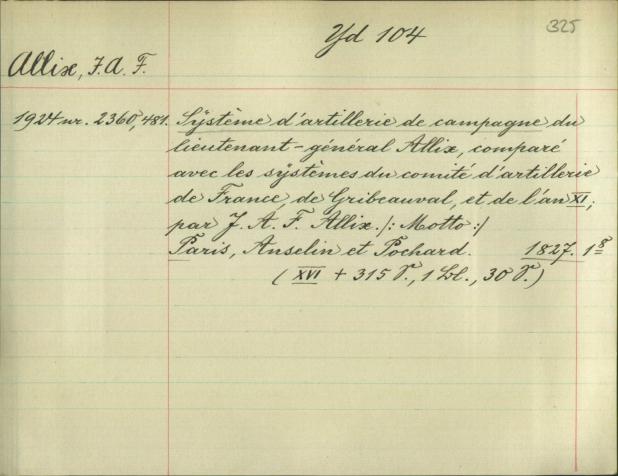 Yd 104
325
Allix, J. A. F.
1924 nr. 2360,481. Système d'artillerie de campagne du
lieutenant-général Allix, comparé
avec les systèmes du comité d'artillerie
de France, de Gribeauval, et de l'an XI;
par J. A. F. Allix. /: Motto :/
Paris, Anselin et Pochard. 1827. 1 8
( XVI + 315 P., 1 bl., 30 P.)